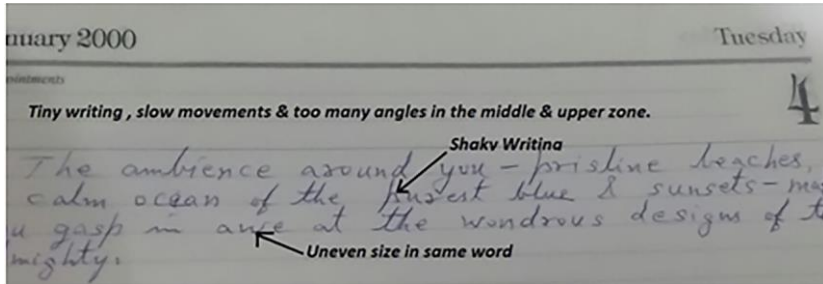 nuary 2000 Tuesday
ointments
4
Tiny writing , slow movements & too many angles in the middle & upper zone.
Shaky Writing
The ambience around you – pristine beaches,
calm ocean of the purest blue & sunsets – ma
u gasp in awe at the wondrous designs of t
mighty.
Uneven size in same word